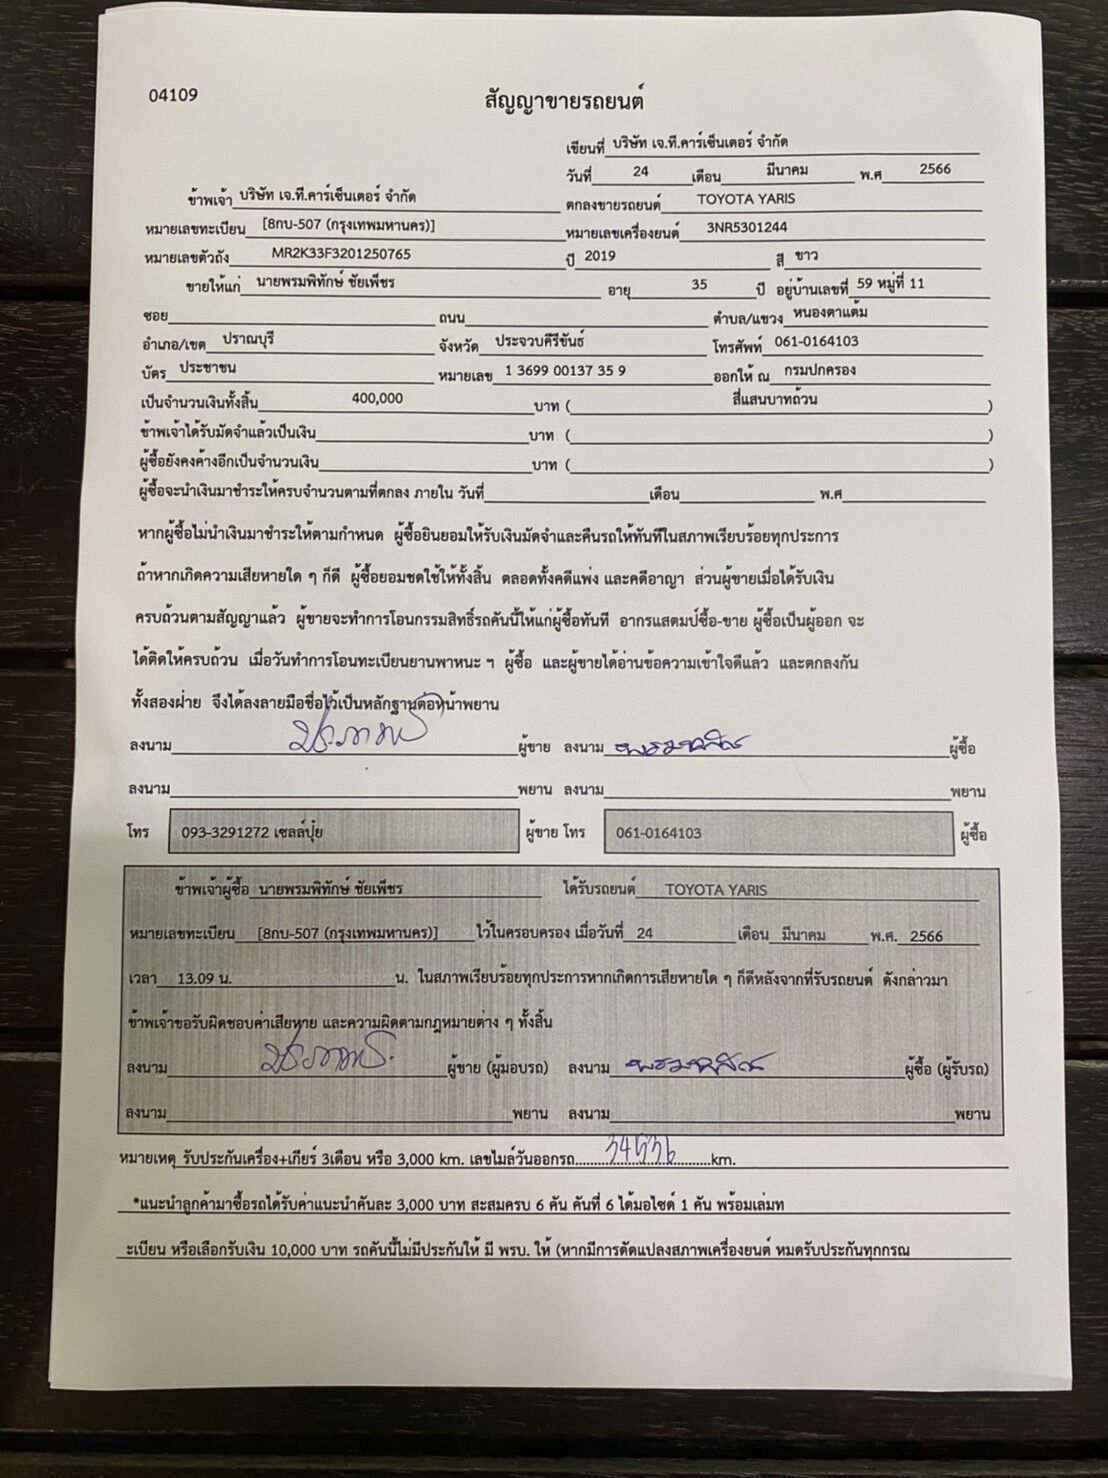 04109
สัญญาขายรถยนต์
เขียนที่ บริษัท เจ.ที.คาร์เซ็นเตอร์ จำกัด
วันที่ 24 เดือน มีนาคม พ.ศ 2566
ข้าพเจ้า บริษัท เจ.ที.คาร์เซ็นเตอร์ จำกัด ตกลงขายรถยนต์ TOYOTA YARIS
หมายเลขทะเบียน [8กบ-507 (กรุงเทพมหานคร)] หมายเลขเครื่องยนต์ 3NR5301244
หมายเลขตัวถัง MR2K33F3201250765 ปี 2019 สี ขาว
ขายให้แก่ นายพรมพิทักษ์ ชัยเพ็ชร อายุ 35 ปี อยู่บ้านเลขที่ 59 หมู่ที่ 11
ซอย ถนน ตำบล/แขวง หนองตาแต้ม
อำเภอ/เขต ปราณบุรี จังหวัด ประจวบคีรีขันธ์ โทรศัพท์ 061-0164103
บัตร ประชาชน หมายเลข 1 3699 00137 35 9 ออกให้ ณ กรมปกครอง
เป็นจำนวนเงินทั้งสิ้น 400,000 บาท ( สี่แสนบาทถ้วน )
ข้าพเจ้าได้รับมัดจำแล้วเป็นเงิน บาท ( )
ผู้ซื้อยังคงค้างอีกเป็นจำนวนเงิน บาท ( )
ผู้ซื้อจะนำเงินมาชำระให้ครบจำนวนตามที่ตกลง ภายใน วันที่ เดือน พ.ศ
หากผู้ซื้อไม่นำเงินมาชำระให้ตามกำหนด ผู้ซื้อยินยอมให้รับเงินมัดจำและคืนรถให้ทันทีในสภาพเรียบร้อยทุกประการ
ถ้าหากเกิดความเสียหายใด ๆ ก็ดี ผู้ซื้อยอมชดใช้ให้ทั้งสิ้น ตลอดทั้งคดีแพ่ง และคดีอาญา ส่วนผู้ขายเมื่อได้รับเงิน
ครบถ้วนตามสัญญาแล้ว ผู้ขายจะทำการโอนกรรมสิทธิ์รถคันนี้ให้แก่ผู้ซื้อทันที อากรแสตมป์ซื้อ-ขาย ผู้ซื้อเป็นผู้ออก จะ
ได้ติดให้ครบถ้วน เมื่อวันทำการโอนทะเบียนยานพาหนะ ฯ ผู้ซื้อ และผู้ขายได้อ่านข้อความเข้าใจดีแล้ว และตกลงกัน
ทั้งสองฝ่าย จึงได้ลงลายมือชื่อไว้เป็นหลักฐานต่อหน้าพยาน
ลงนาม ผู้ขาย ลงนาม ผู้ซื้อ
ลงนาม พยาน ลงนาม พยาน
โทร 093-3291272 เซลล์ปุ๋ย ผู้ขาย โทร 061-0164103 ผู้ซื้อ
ข้าพเจ้าผู้ซื้อ นายพรมพิทักษ์ ชัยเพ็ชร ได้รับรถยนต์ TOYOTA YARIS
หมายเลขทะเบียน [8กบ-507 (กรุงเทพมหานคร)] ไว้ในครอบครอง เมื่อวันที่ 24 เดือน มีนาคม พ.ศ. 2566
เวลา 13.09 น. น. ในสภาพเรียบร้อยทุกประการหากเกิดการเสียหายใด ๆ ก็ดีหลังจากที่รับรถยนต์ ดังกล่าวมา
ข้าพเจ้าขอรับผิดชอบค่าเสียหาย และความผิดตามกฎหมายต่าง ๆ ทั้งสิ้น
ลงนาม ผู้ขาย (ผู้มอบรถ) ลงนาม ผู้ซื้อ (ผู้รับรถ)
ลงนาม พยาน ลงนาม พยาน
หมายเหตุ รับประกันเครื่อง+เกียร์ 3เดือน หรือ 3,000 km. เลขไมล์วันออกรถ.....................km.
*แนะนำลูกค้ามาซื้อรถได้รับค่าแนะนำคันละ 3,000 บาท สะสมครบ 6 คัน คันที่ 6 ได้มอไซด์ 1 คัน พร้อมเล่มท
ะเบียน หรือเลือกรับเงิน 10,000 บาท รถคันนี้ไม่มีประกันให้ มี พรบ. ให้ (หากมีการดัดแปลงสภาพเครื่องยนต์ หมดรับประกันทุกกรณ